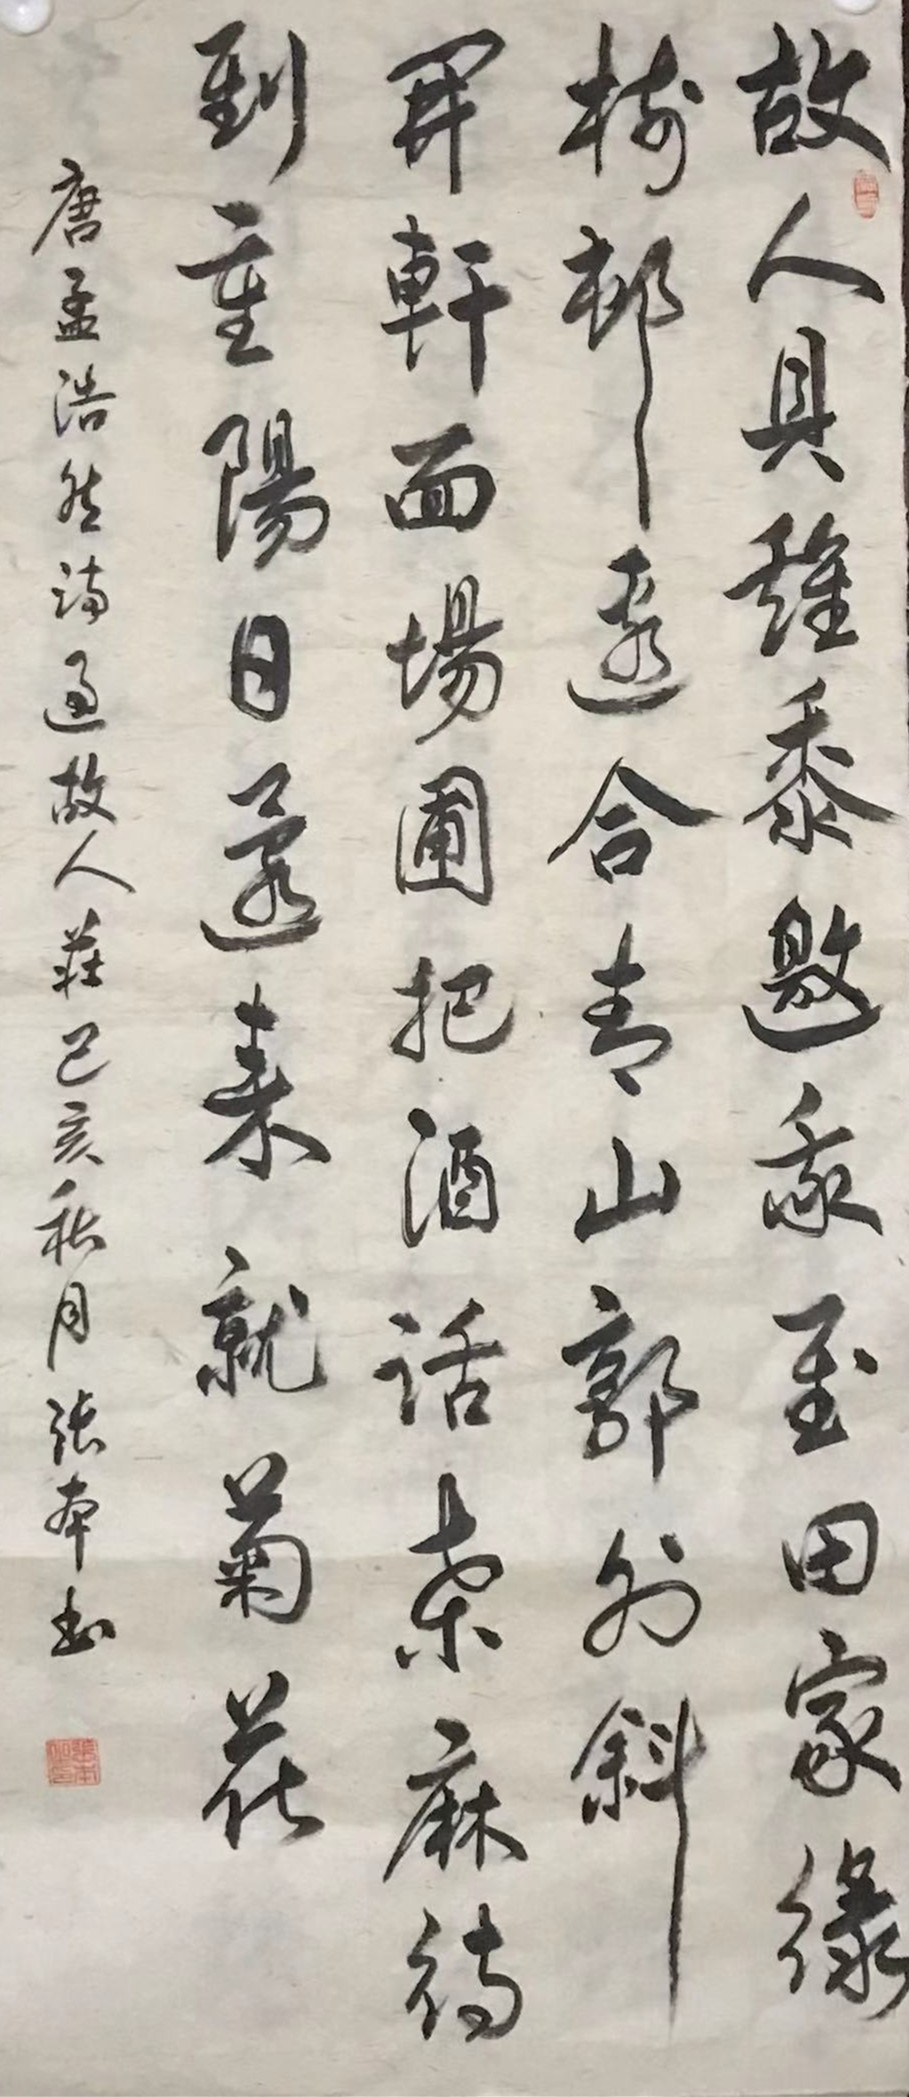 故人具雞黍邀我至田家綠
樹邨邊合青山郭外斜
開軒面場圃把酒話桑麻待
到重陽日還来就菊花
唐孟浩然詩過故人莊己亥秋月張本書